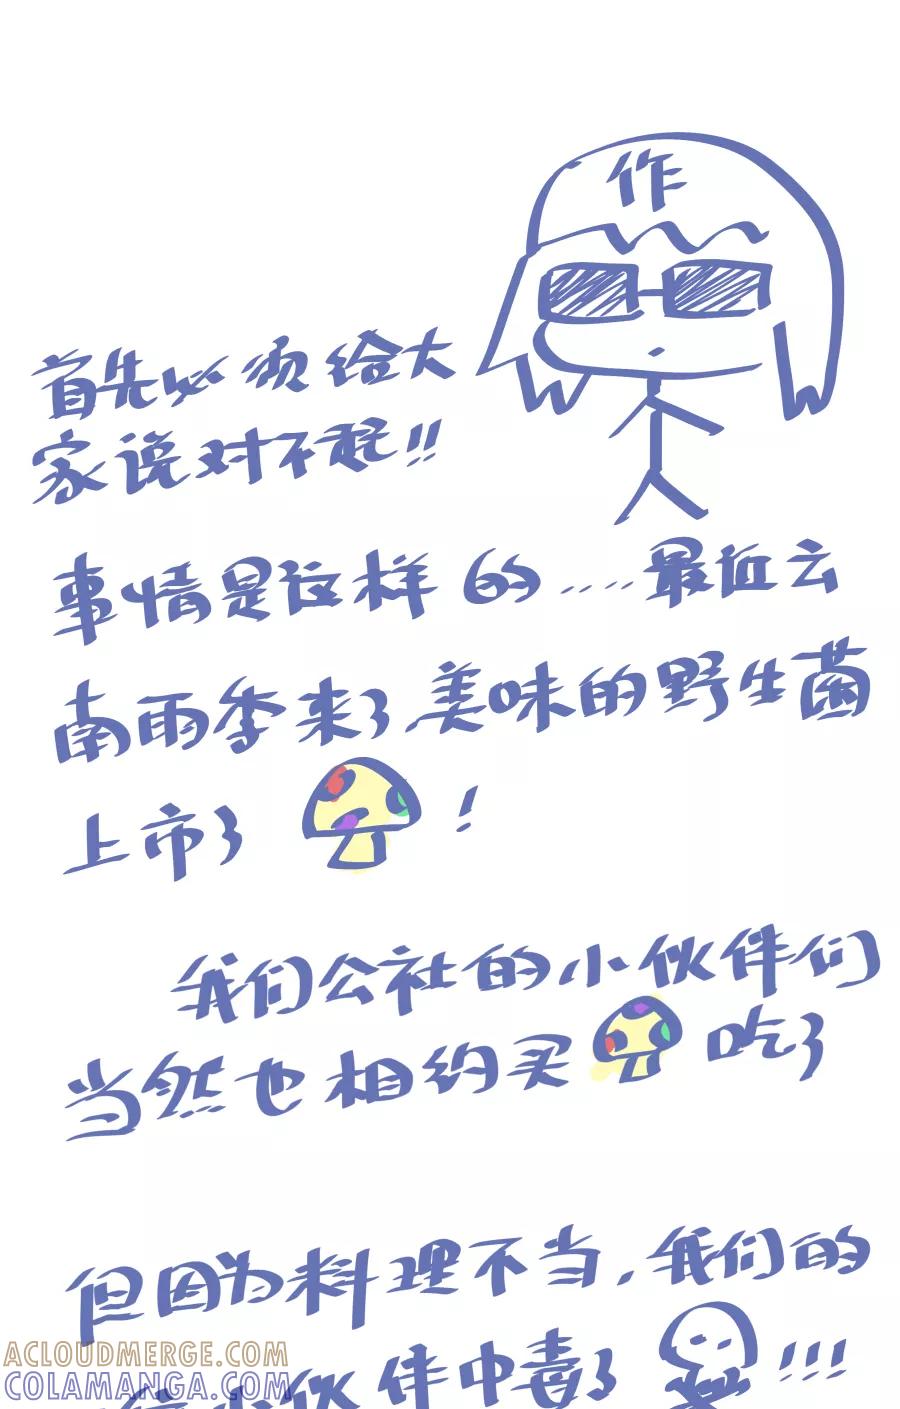 作
首先必须给大
家说对不起!!
事情是这样的....最近云
南雨季来了,美味的野生菌
上市了!
我们公社的小伙伴们
当然也相约买吃了
但因为料理不当,我们的
小伙伴中毒了!!!
ACLOUDMERGE.COM
COLAMANGA.COM